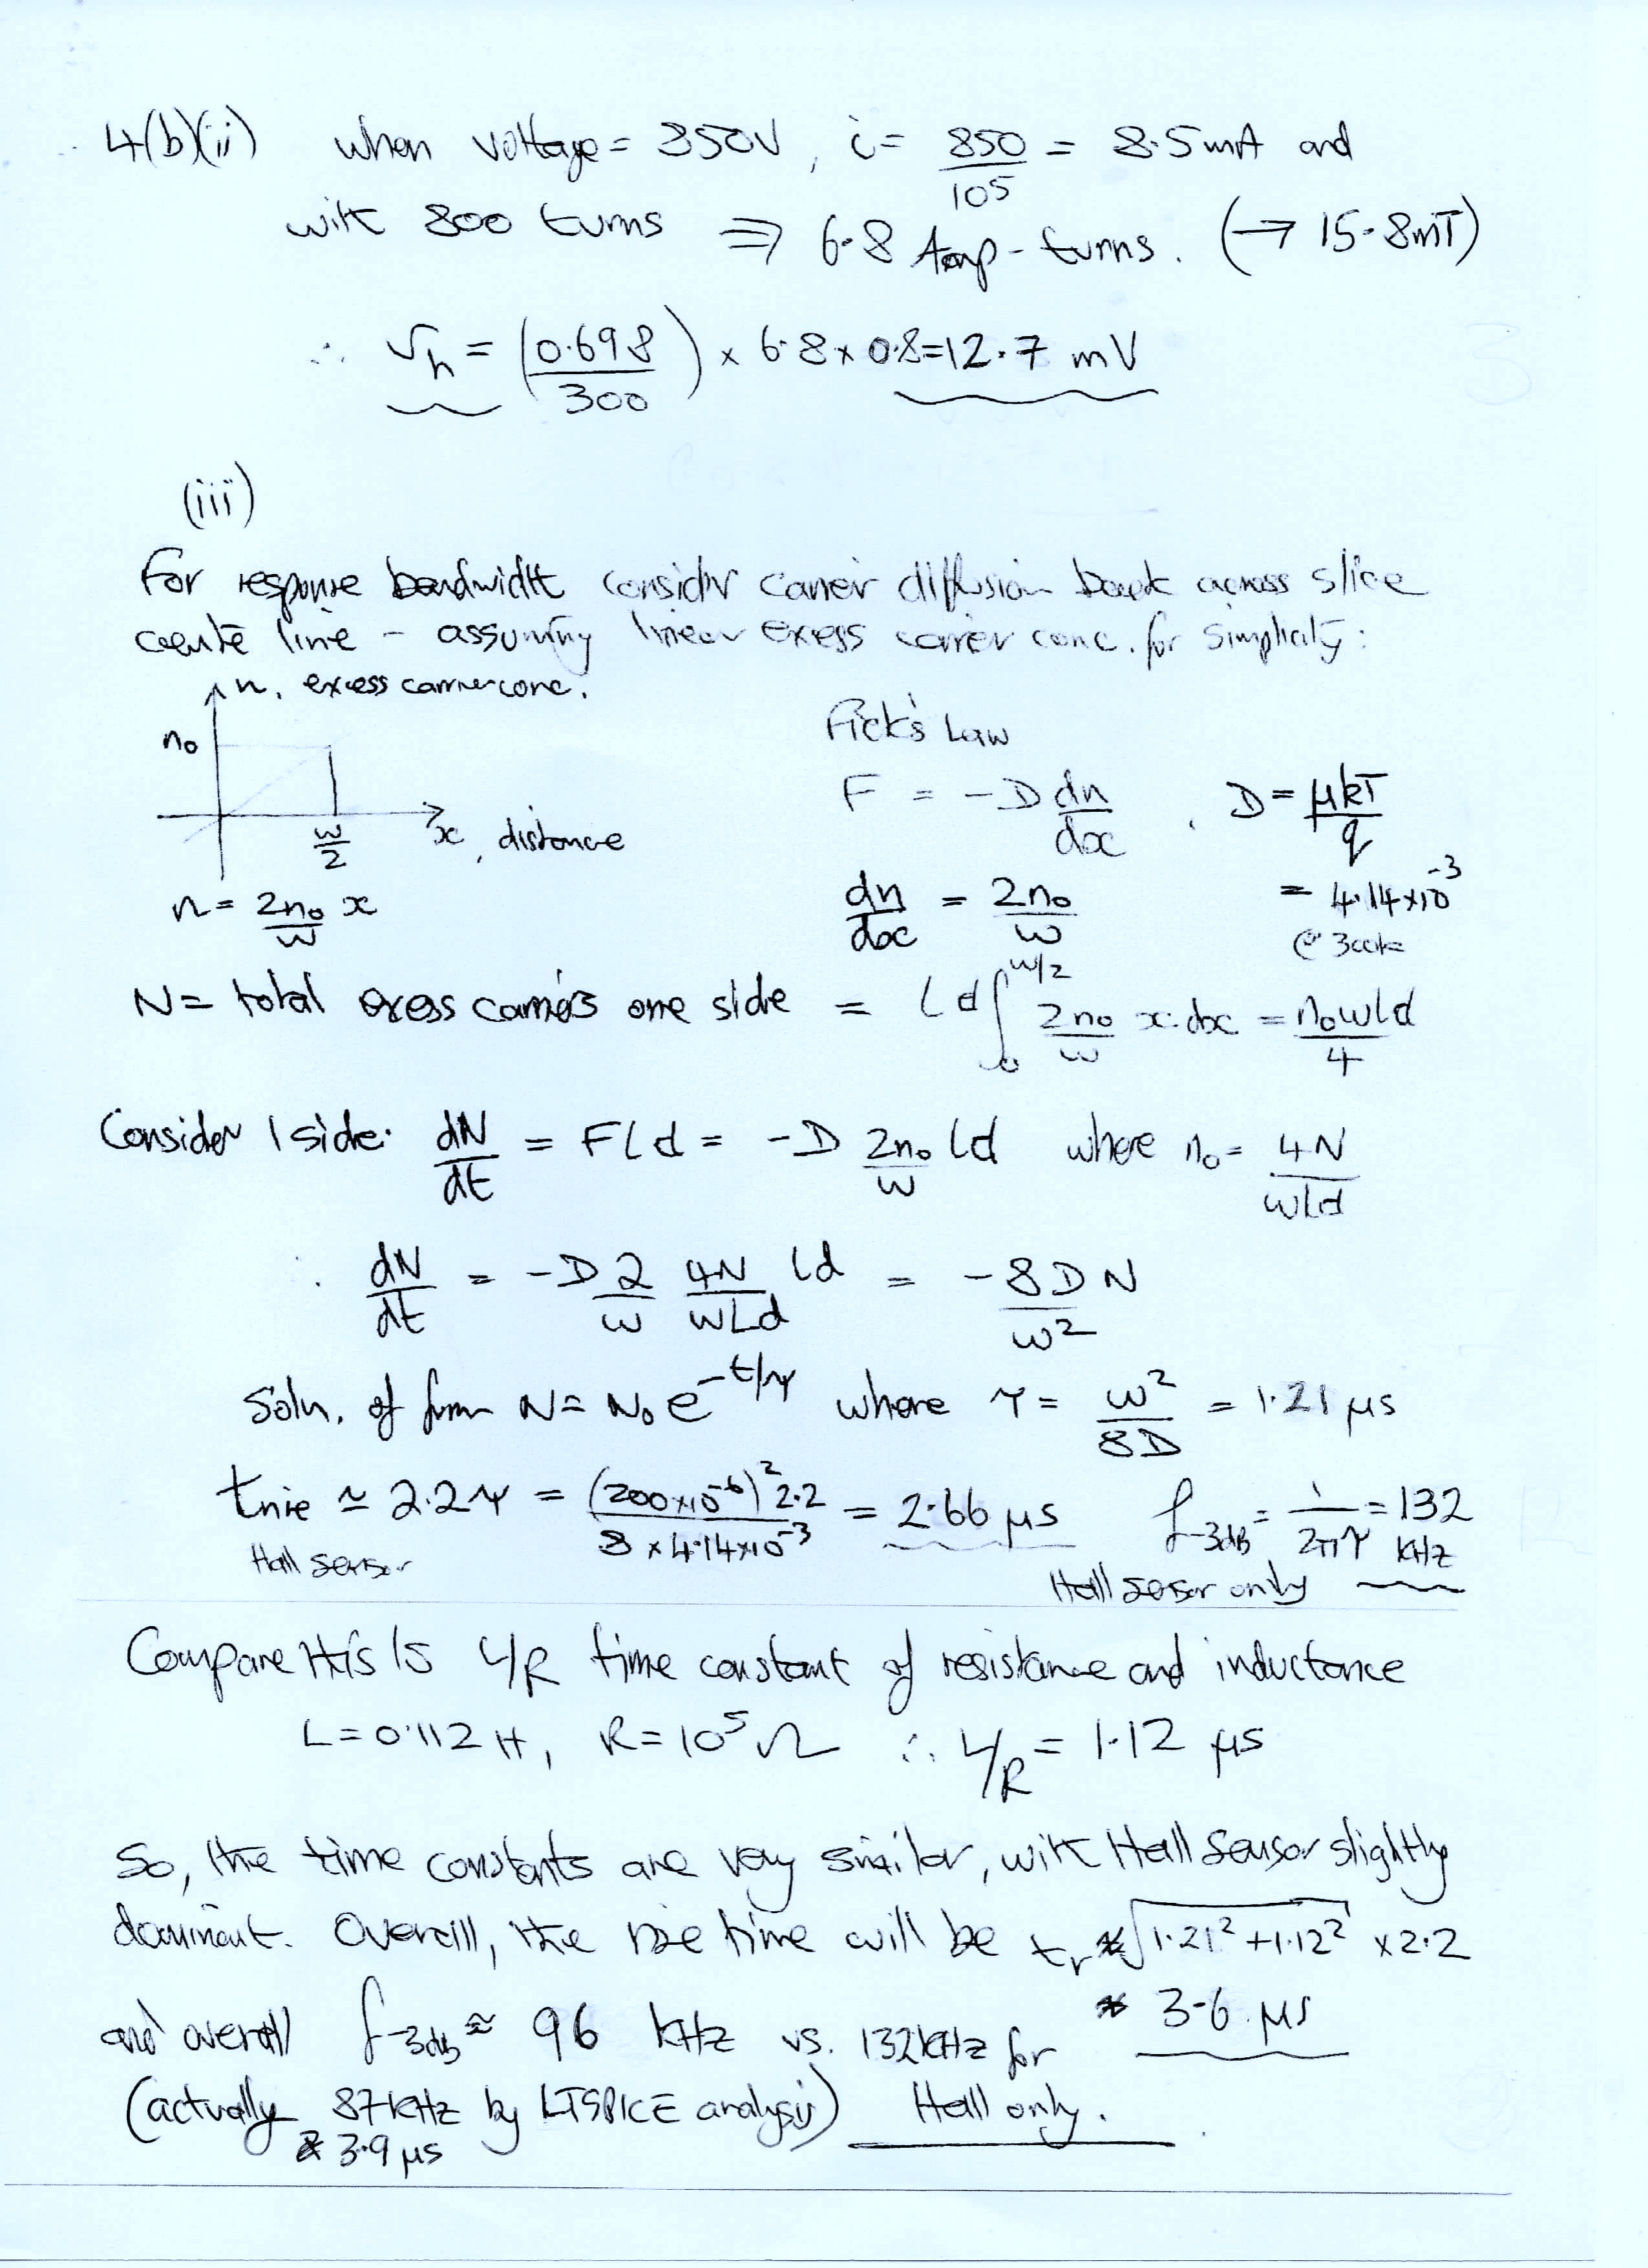 4(b)(ii) when voltage = 850V, i = 850/10⁵ = 8.5mA and
with 800 turns ⇒ 6.8 Amp-turns. (→ 15.8mT)
∴ Vh = (0.698/300) × 6.8 × 0.8 = 12.7 mV
(iii)
For response bandwidth consider carrier diffusion back across slice
centre line - assuming linear excess carrier conc. for simplicity:
n, excess carrier conc.
n₀
w/2
x, distance
n = 2n₀/w x
Fick's Law
F = -D dn/dx, D = μkT/q
dn/dx = 2n₀/w
= 4.14×10⁻³
@ 300k
N = total excess carriers one side = ld ∫₀^(w/2) 2n₀/w x.dx = n₀wld/4
Consider 1 side: dN/dt = Fld = -D 2n₀/w ld where n₀ = 4N/wld
∴ dN/dt = -D 2/w 4N/wld ld = -8DN/w²
Soln. of form N = N₀ e^(-t/τ) where τ = w²/8D = 1.21 μs
trise ≃ 2.2τ = (200×10⁻⁶)² 2.2/8×4.14×10⁻³ = 2.66 μs f-3dB = 1/2πτ = 132 kHz
Hall sensor
Hall sensor only
Compare this to L/R time constant of resistance and inductance
L = 0.112 H, R = 10⁵ Ω ∴ L/R = 1.12 μs
So, the time constants are very similar, with Hall Sensor slightly
dominant. Overall, the rise time will be tr ≈ √(1.21² + 1.12²) × 2.2
≈ 3.6 μs
and overall f-3dB ≈ 96 kHz vs. 132kHz for
(actually 87kHz by LTSPICE analysis) Hall only.
& 3.9 μs